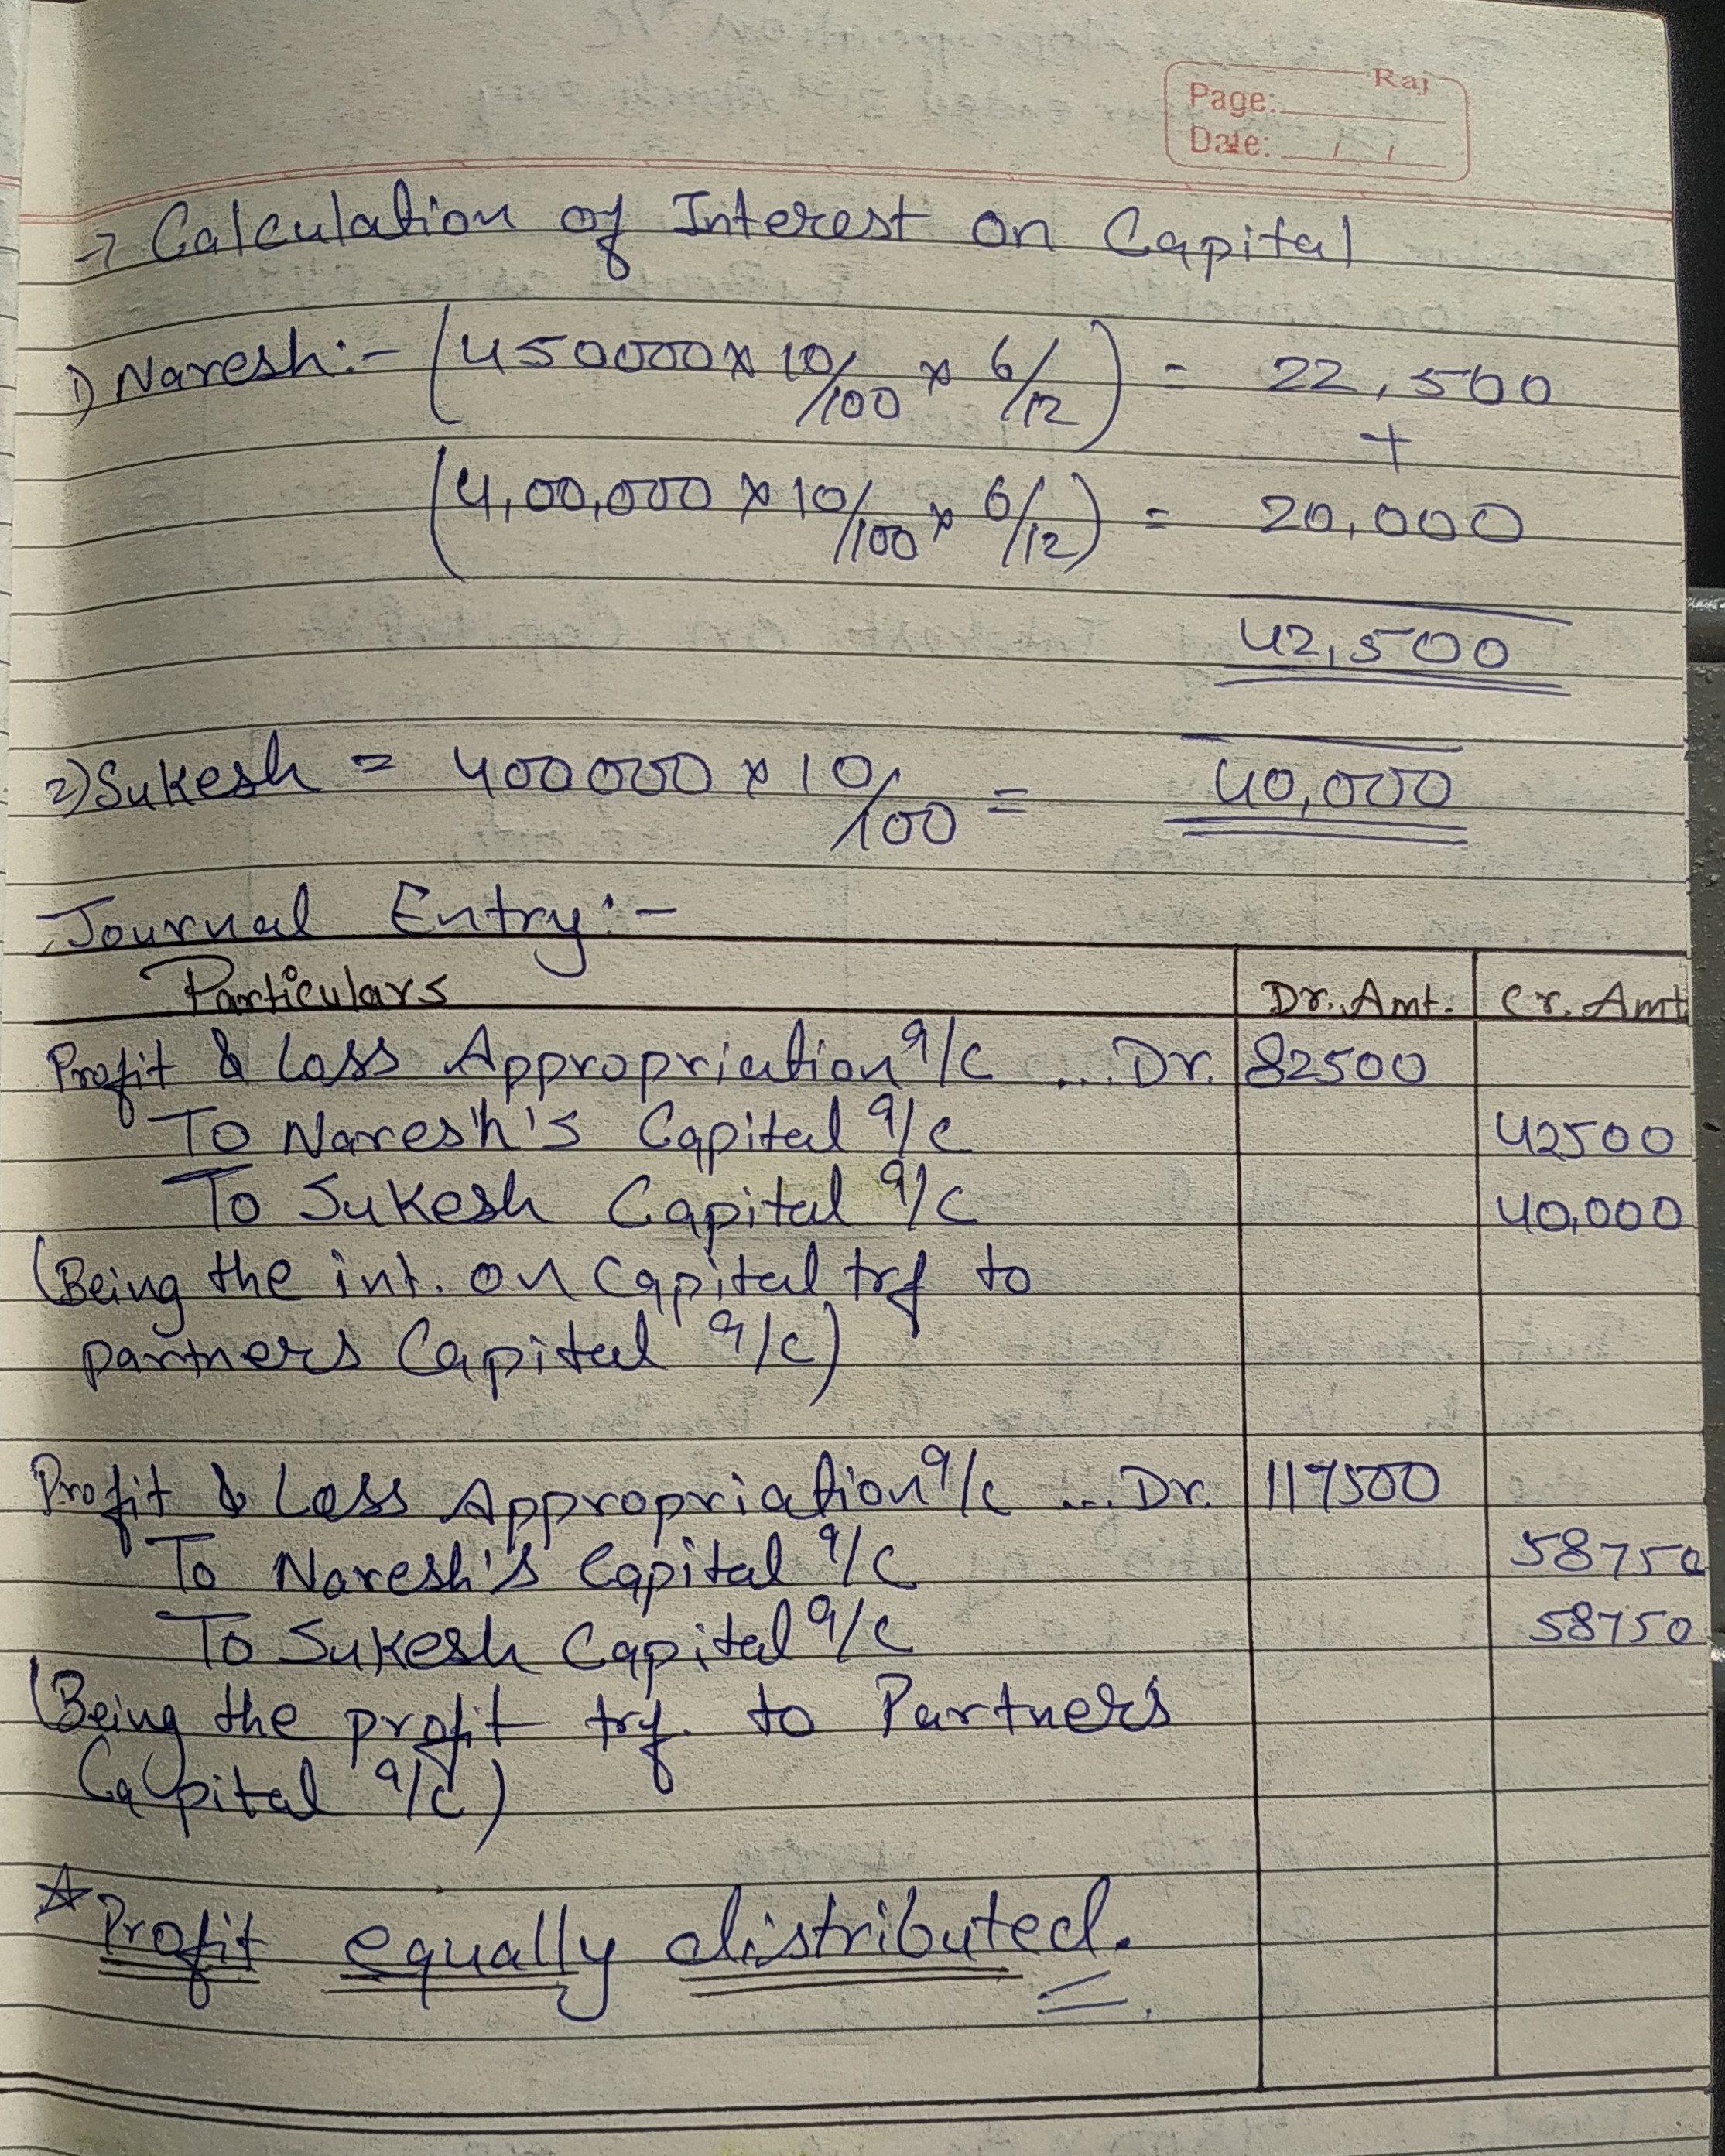 Raj
Page:
Date: / /
→ Calculation of Interest on Capital
1) Naresh:- (450000 x 10/100 x 6/12) = 22,500
+
(4,00,000 x 10/100 x 6/12) = 20,000
42,500
2) Sukesh = 400000 x 10/100 = 40,000
Journal Entry:-
Particulars Dr. Amt. Cr. Amt
Profit & Loss Appropriation a/c ... Dr. 82500
To Naresh's Capital a/c 42500
To Sukesh Capital a/c 40,000
(Being the int. on Capital trf to
partners Capital a/c)
Profit & Loss Appropriation a/c ... Dr. 117500
To Naresh's Capital a/c 58750
To Sukesh Capital a/c 58750
(Being the profit trf. to Partners
Capital a/c)
☆ Profit equally distributed.